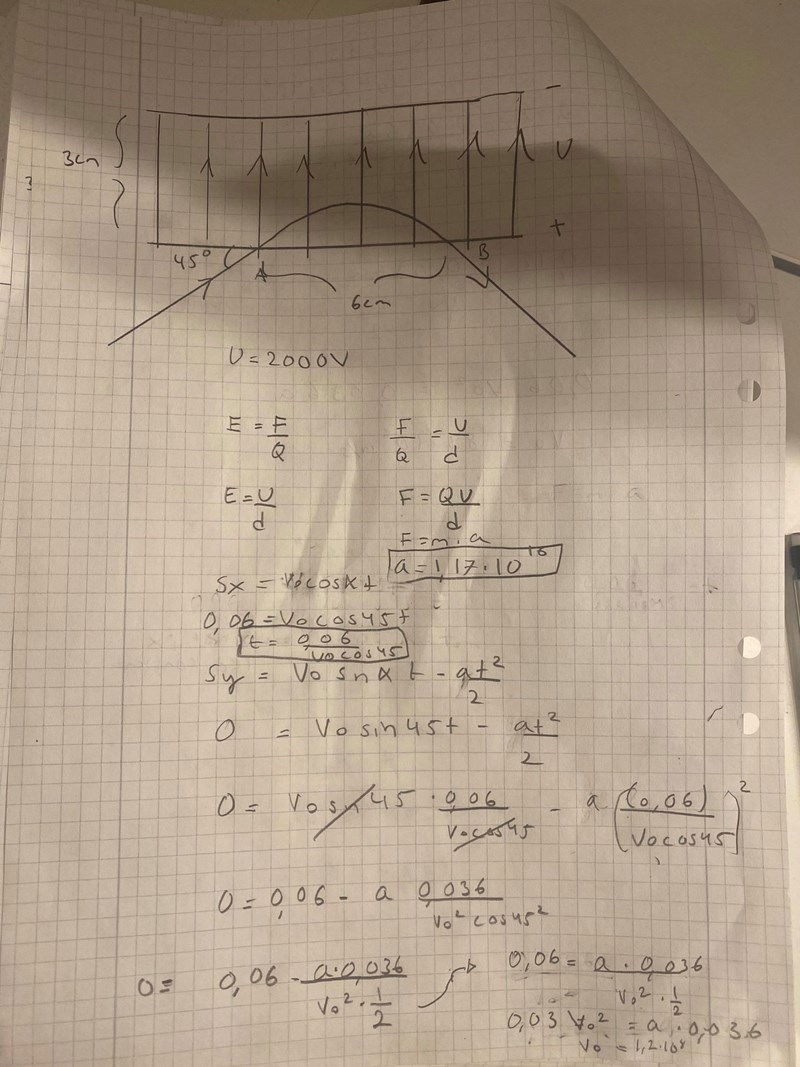 -
3cm
U
?
+
45°
A
B
6cm
U = 2000V
E = F/Q
F/Q = U/d
E = U/d
F = QU/d
F = m · a
a = 1,17 · 10^16
Sx = V₀ cos α t
0,06 = V₀ cos 45 t
t = 0,06/(V₀ cos 45)
Sy = V₀ sn α t - at²/2
0 = V₀ sin 45 t - at²/2
0 = V₀ sn 45 · 0,06/(V₀ cos 45) - a ((0,06)/(V₀ cos 45))²
0 = 0,06 - a 0,036/(V₀² cos 45²)
0 = 0,06 - a · 0,036/(V₀² · 1/2)
0,06 = a · 0,036/(V₀² · 1/2)
0,03 V₀² = a · 0,036
V₀ = 1,2 · 10⁸